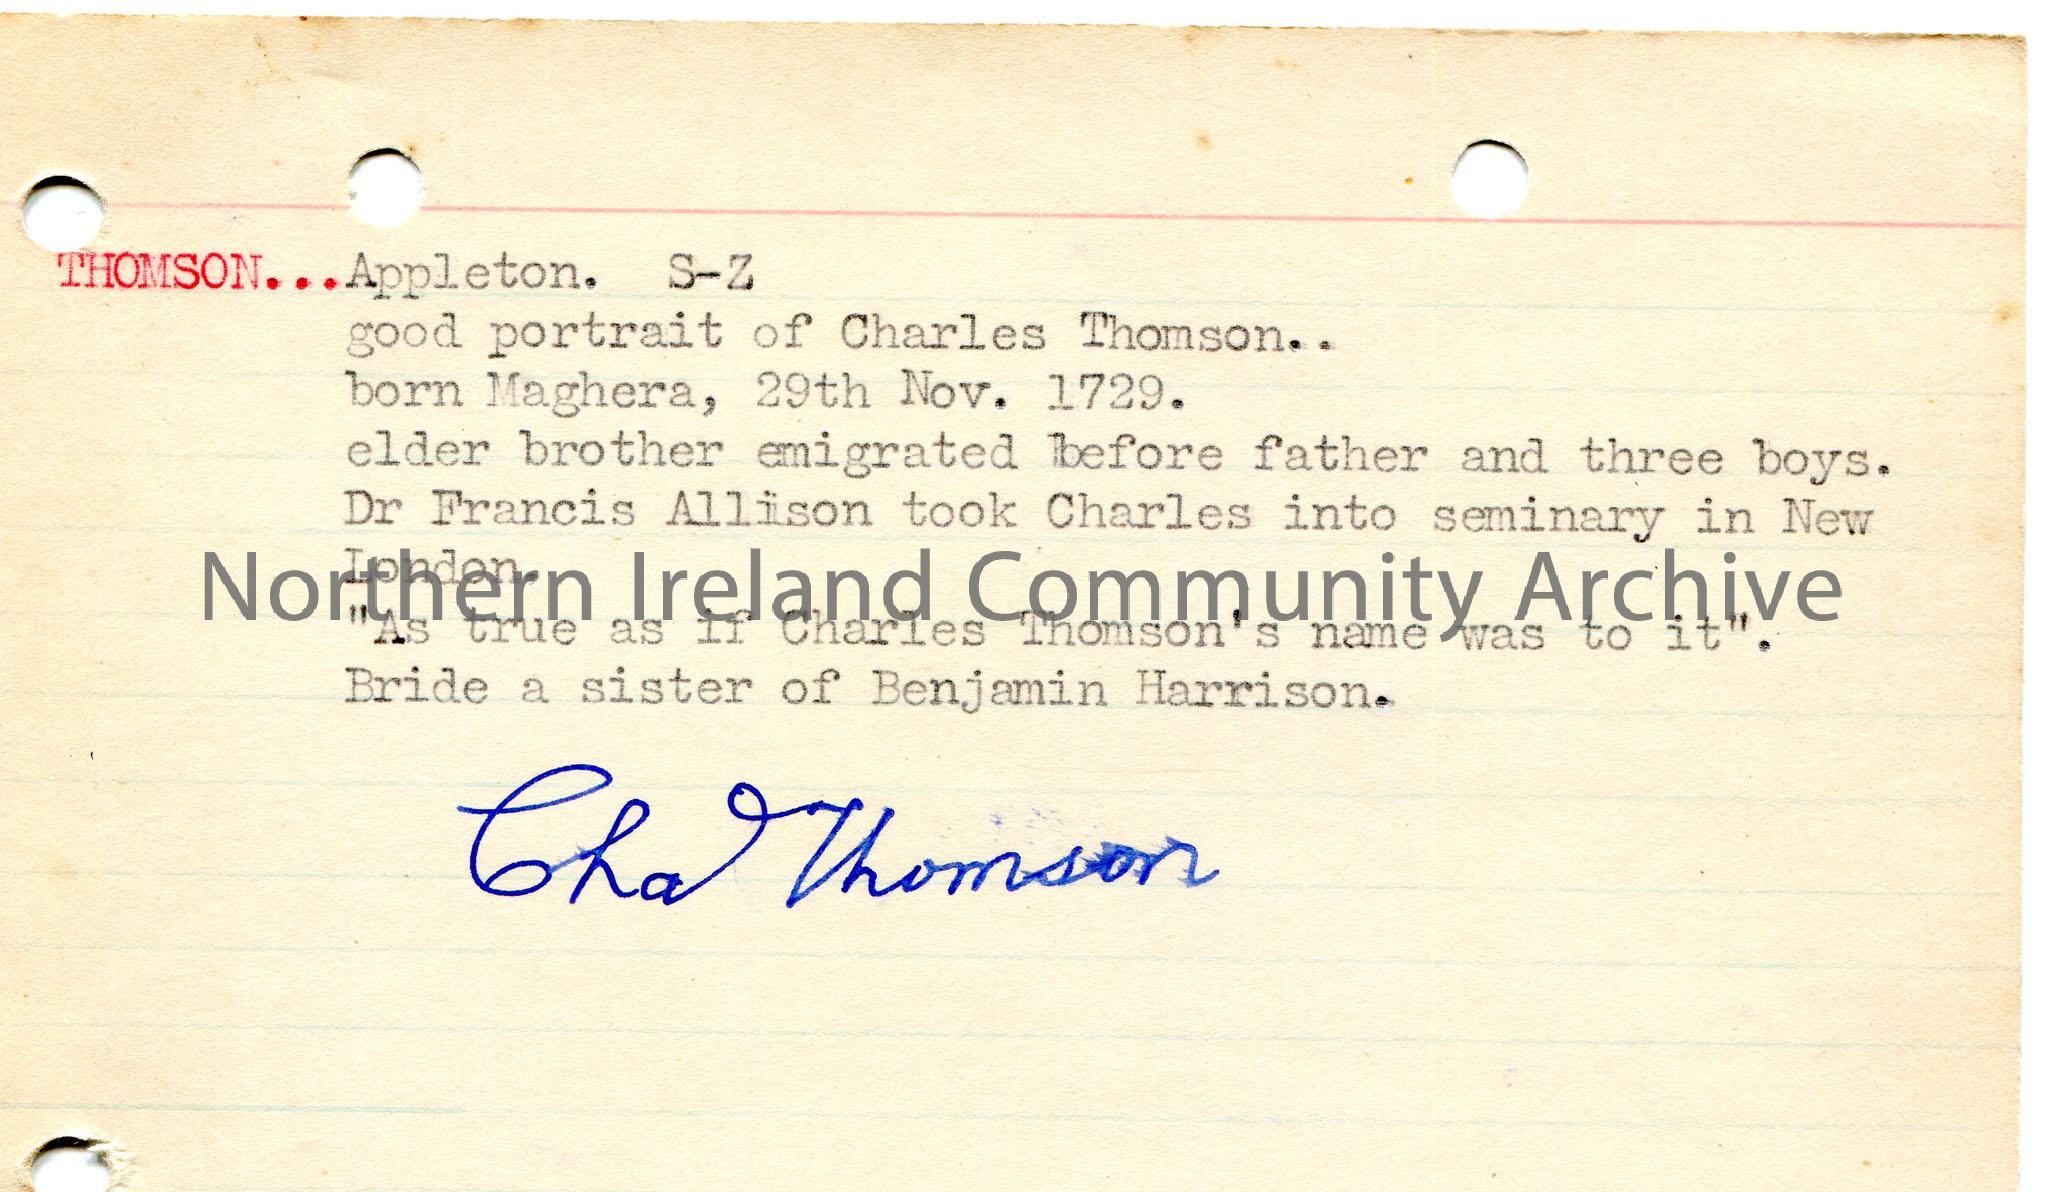 THOMSON...Appleton.  S-Z
good portrait of Charles Thomson..
born Maghera, 29th Nov. 1729.
elder brother emigrated before father and three boys.
Dr Francis Allison took Charles into seminary in New
London.
Northern Ireland Community Archive
"As true as if Charles Thomson's name was to it".
Bride a sister of Benjamin Harrison.
Cha Thomson